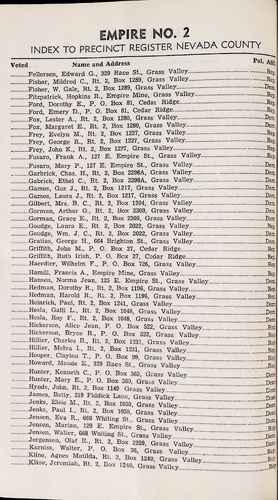 EMPIRE NO. 2
INDEX TO PRECINCT REGISTER NEVADA COUNTY
Voted Name and Address Pol. Aff.
Fellersen, Edward G., 329 Race St., Grass Valley
Fisher, Mildred C., Rt. 2, Box 1289, Grass Valley
Fisher, W. Gale, Rt. 2, Box 1289, Grass Valley
Fitzpatrick, Hopkins R., Empire Mine, Grass Valley
Ford, Dorothy E., P. O. Box 81, Cedar Ridge
Ford, Emery D., P. O. Box 81, Cedar Ridge
Fox, Lester A., Rt. 2, Box 1280, Grass Valley
Fox, Margaret E., Rt. 2, Box 1280, Grass Valley
Frey, Evelyn M., Rt. 2, Box 1227, Grass Valley
Frey, George R., Rt. 2, Box 1227, Grass Valley
Frey, John K., Rt. 2, Box 1227, Grass Valley
Fusaro, Frank A., 127 E. Empire St., Grass Valley
Fusaro, Mary P., 127 E. Empire St., Grass Valley
Garbrick, Chas. H., Rt. 2, Box 2298A, Grass Valley
Gabrick, Ethel C., Rt. 2, Box 2298A, Grass Valley
Gamos, Gus J., Rt. 2, Box 1217, Grass Valley
Gamos, Laura J., Rt. 2, Box 1217, Grass Valley
Gilbert, Mrs. B. C., Rt. 2, Box 1204, Grass Valley
Gorman, Arthur O., Rt. 2, Box 2309, Grass Valley
Gorman, Grace E., Rt. 2, Box 2309, Grass Valley
Goudge, Laura E., Rt. 2, Box 2022, Grass Valley
Goudge, Wm. J. C., Rt. 2, Box 2022, Grass Valley
Gratias, George H., 664 Brighton St., Grass Valley
Griffith, John M., P. O. Box 27, Cedar Ridge
Griffith, Ruth Irish, P. O. Box 27, Cedar Ridge
Haerdter, Wilhelm F., P. O. Box 726, Grass Valley
Hamill, Francis A., Empire Mine, Grass Valley
Hansen, Norma Jean, 125 E. Empire St., Grass Valley
Hedman, Dorothy R., Rt. 2, Box 1196, Grass Valley
Hedman, Harold R., Rt. 2, Box 1196, Grass Valley
Heinrich, Paul, Rt. 2, Box 1241, Grass Valley
Hesla, Galli L., Rt. 2, Box 1048, Grass Valley
Hesla, Roy F., Rt. 2, Box 1048, Grass Valley
Hickerson, Alice Jean, P. O. Box 522, Grass Valley
Hickerson, Bryce R., P. O. Box 522, Grass Valley
Hillier, Charles B., Rt. 2, Box 1231, Grass Valley
Hillier, Melva I., Rt. 2, Box 1231, Grass Valley
Hooper, Clayton T., P. O. Box 99, Grass Valley
Howard, Maude E., 329 Race St., Grass Valley
Hunter, Kenneth C., P. O. Box 363, Grass Valley
Hunter, Mary E., P. O. Box 363, Grass Valley
Hynds, John, Rt. 2, Box 1149 Grass Valley
James, Betty, 219 Fiddick Lane, Grass Valley
Jenks, Elsie M., Rt. 2, Box 1050, Grass Valley
Jenks, Paul L., Rt. 2, Box 1050, Grass Valley
Jensen, Eva R., 668 Whiting St., Grass Valley
Jensen, Marian, 129 E. Empire St., Grass Valley
Jensen, Walter, 668 Whiting St., Grass Valley
Jorgensen, Olaf R., Rt. 2, Box 2299, Grass Valley
Karniss, Walter, P. O. Box 36, Grass Valley
Kline, Agnes Matilda, Rt. 2, Box 1240, Grass Valley
Kline, Jeremiah, Rt. 2, Box 1240, Grass Valley